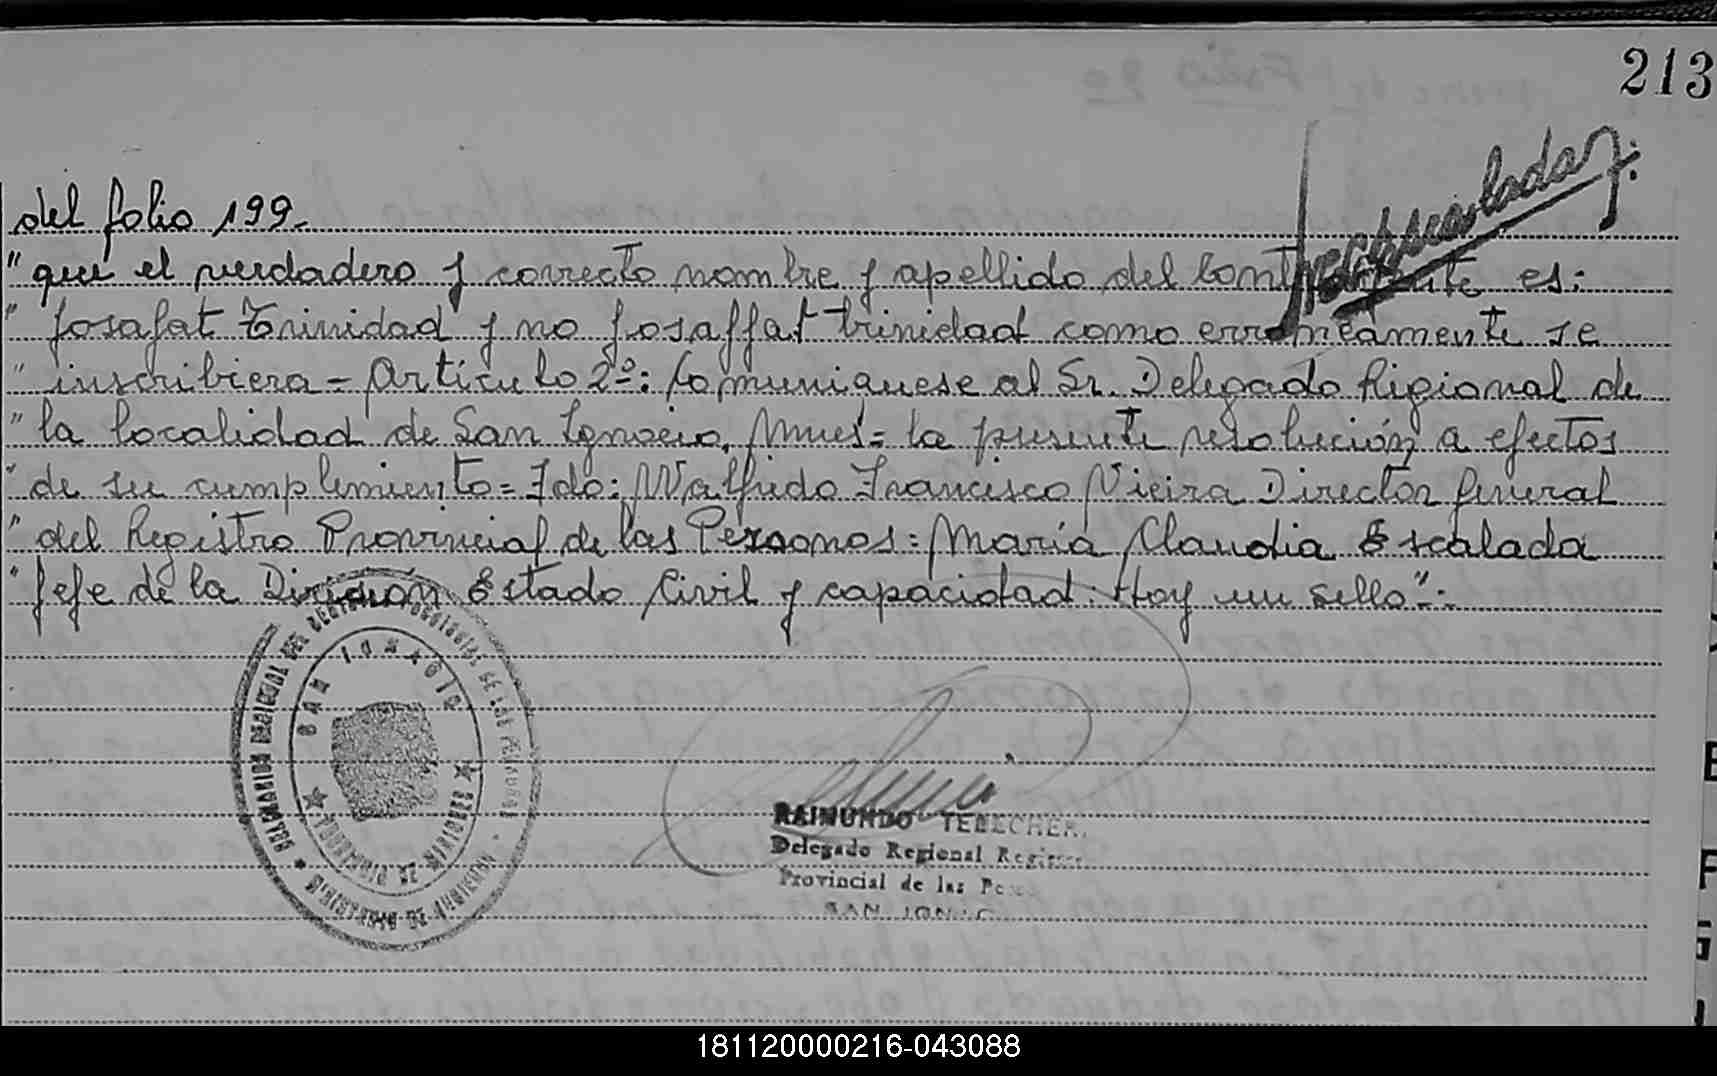 213
del folio 199.
"que el verdadero y correcto nombre y apellido del contrayente es:
" Josafat Trinidad y no Josaffat Trinidad como erroneamente se
" inscribiera - Artículo 2º: Comuniquese al Sr. Delegado Regional de
" la localidad de San Ignacio, Mnes= la presente resolución, a efectos
" de su cumplimiento= Fdo: Walfrido Francisco Vieira Director General
" del Registro Provincial de las Personas: María Claudia Escalada
" Jefe de la División Estado Civil y capacidad. Hay un sello".
SAN IGNACIO
RAIMUNDO TEBECHER
Delegado Regional
Provincial de las
181120000216-043088